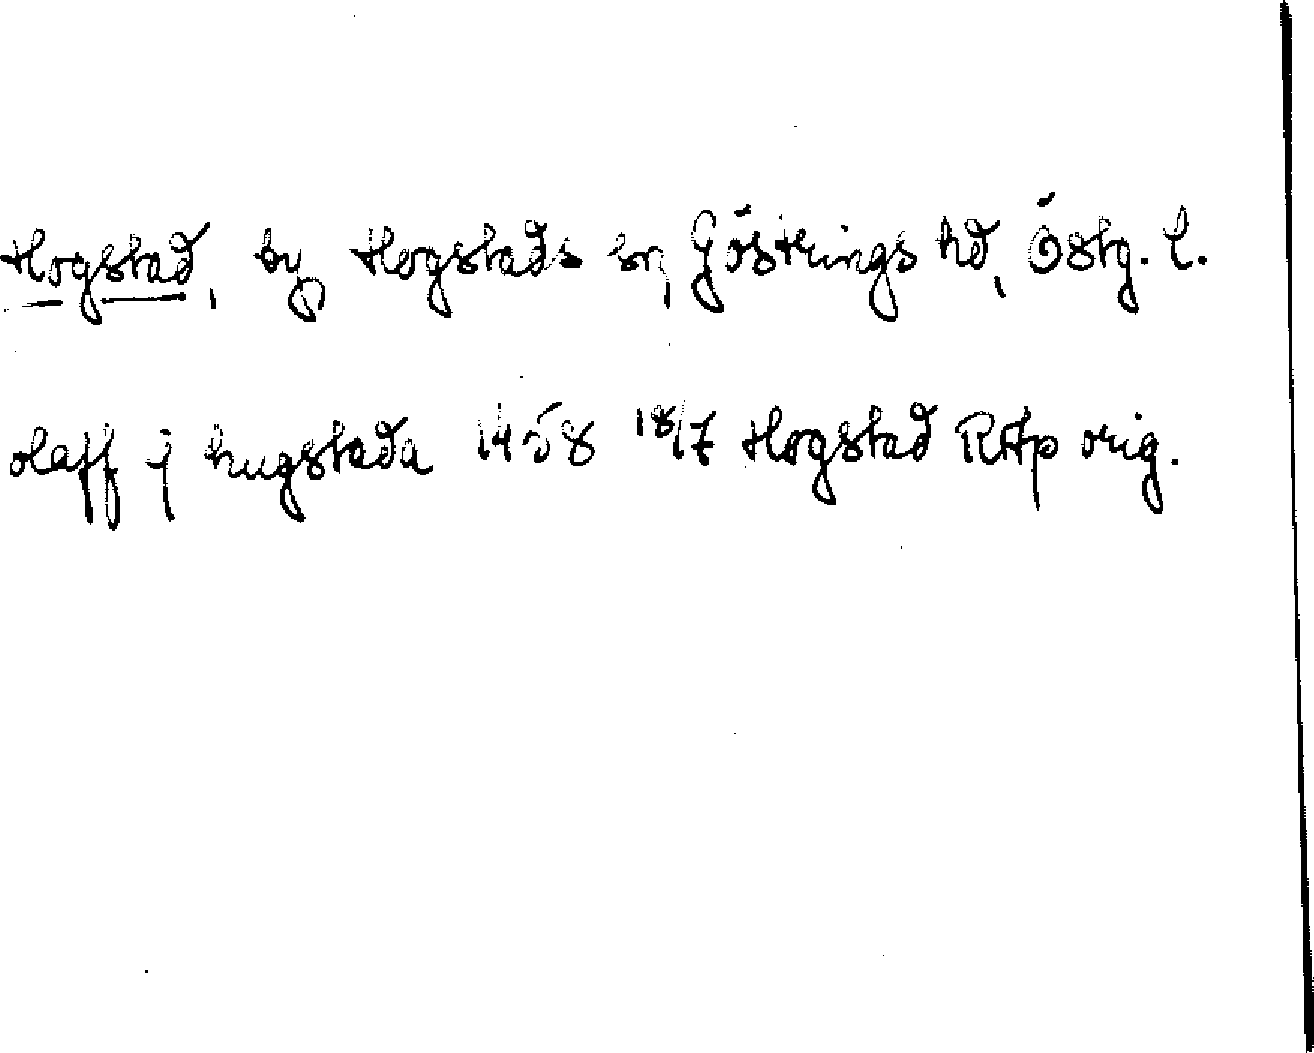 Hogstad, by Hogstads sn, Göstrings hd, Östg. l.
olaff j hugstada 1458 18/7 Hogstad RAp orig.